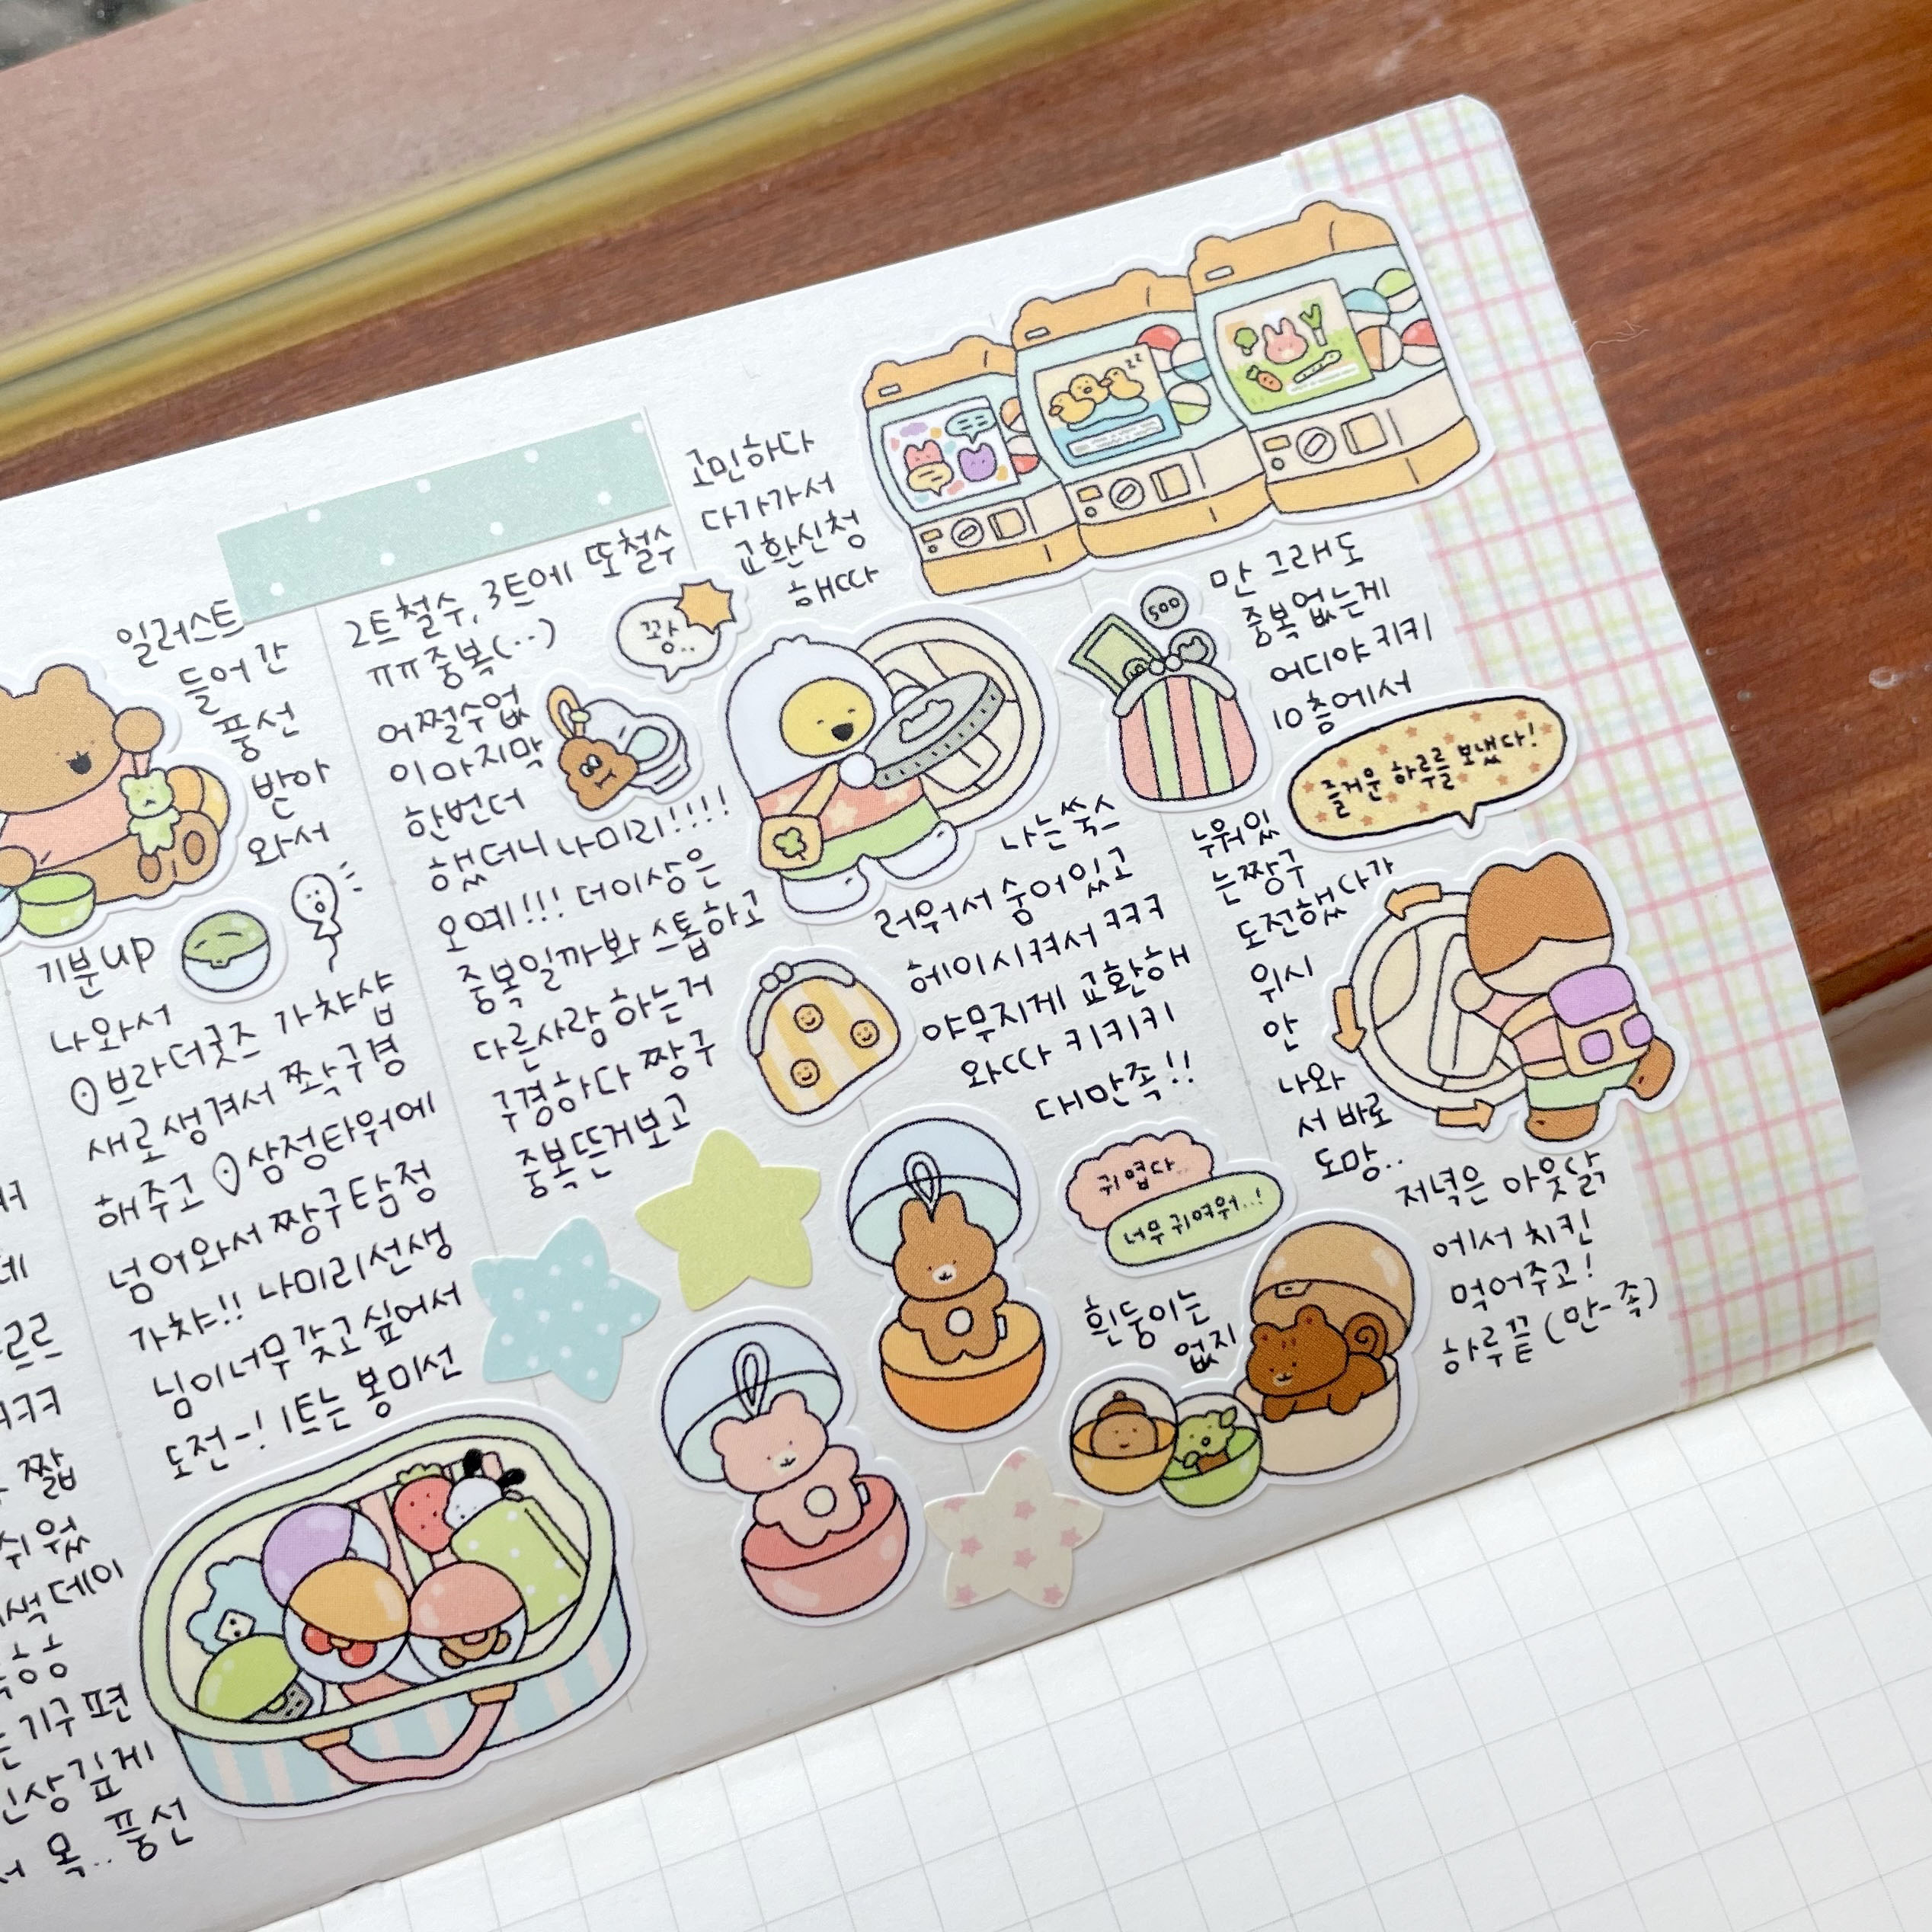 일러스트
들어간
풍선
받아
와서
기분up
나와서
브라더굿즈 가챠샵
새로생겨서 쫙구경
해주고 삼정타워에
넘어와서 짱구탐정
가챠!! 나미리선생
님이너무갖고싶어서
도전-! 1트는 봉미선
2트철수, 3트에 또철수
ㅠㅠ중복(..)
어쩔수없
이마지막
한번더
했더니 나미리!!!!
오예!!! 더이상은
중복일까봐 스톱하고
다른사람 하는거
구경하다 짱구
중복뜬거보고
꽝..
고민하다
다가가서
교환신청
해따
나는쑥스
러워서 숨어있고
헤이시켜서 ㅋㅋㅋ
야무지게 교환해
와따 키키키
대만족!!
귀엽다..
너무 귀여워...!
흰둥이는
없지
500
만 그래도
중복없는게
어디야 키키
10층에서
즐거운 하루를 보냈다!
누워있
는짱구
도전했다가
위시
안
나와
서 바로
도망..
저녁은 아웃닭
에서 치킨
먹어주고!
하루끝 (만-족)
르르
짧
쉬웠
색데이
기구편
인상깊게
서 목.. 풍선